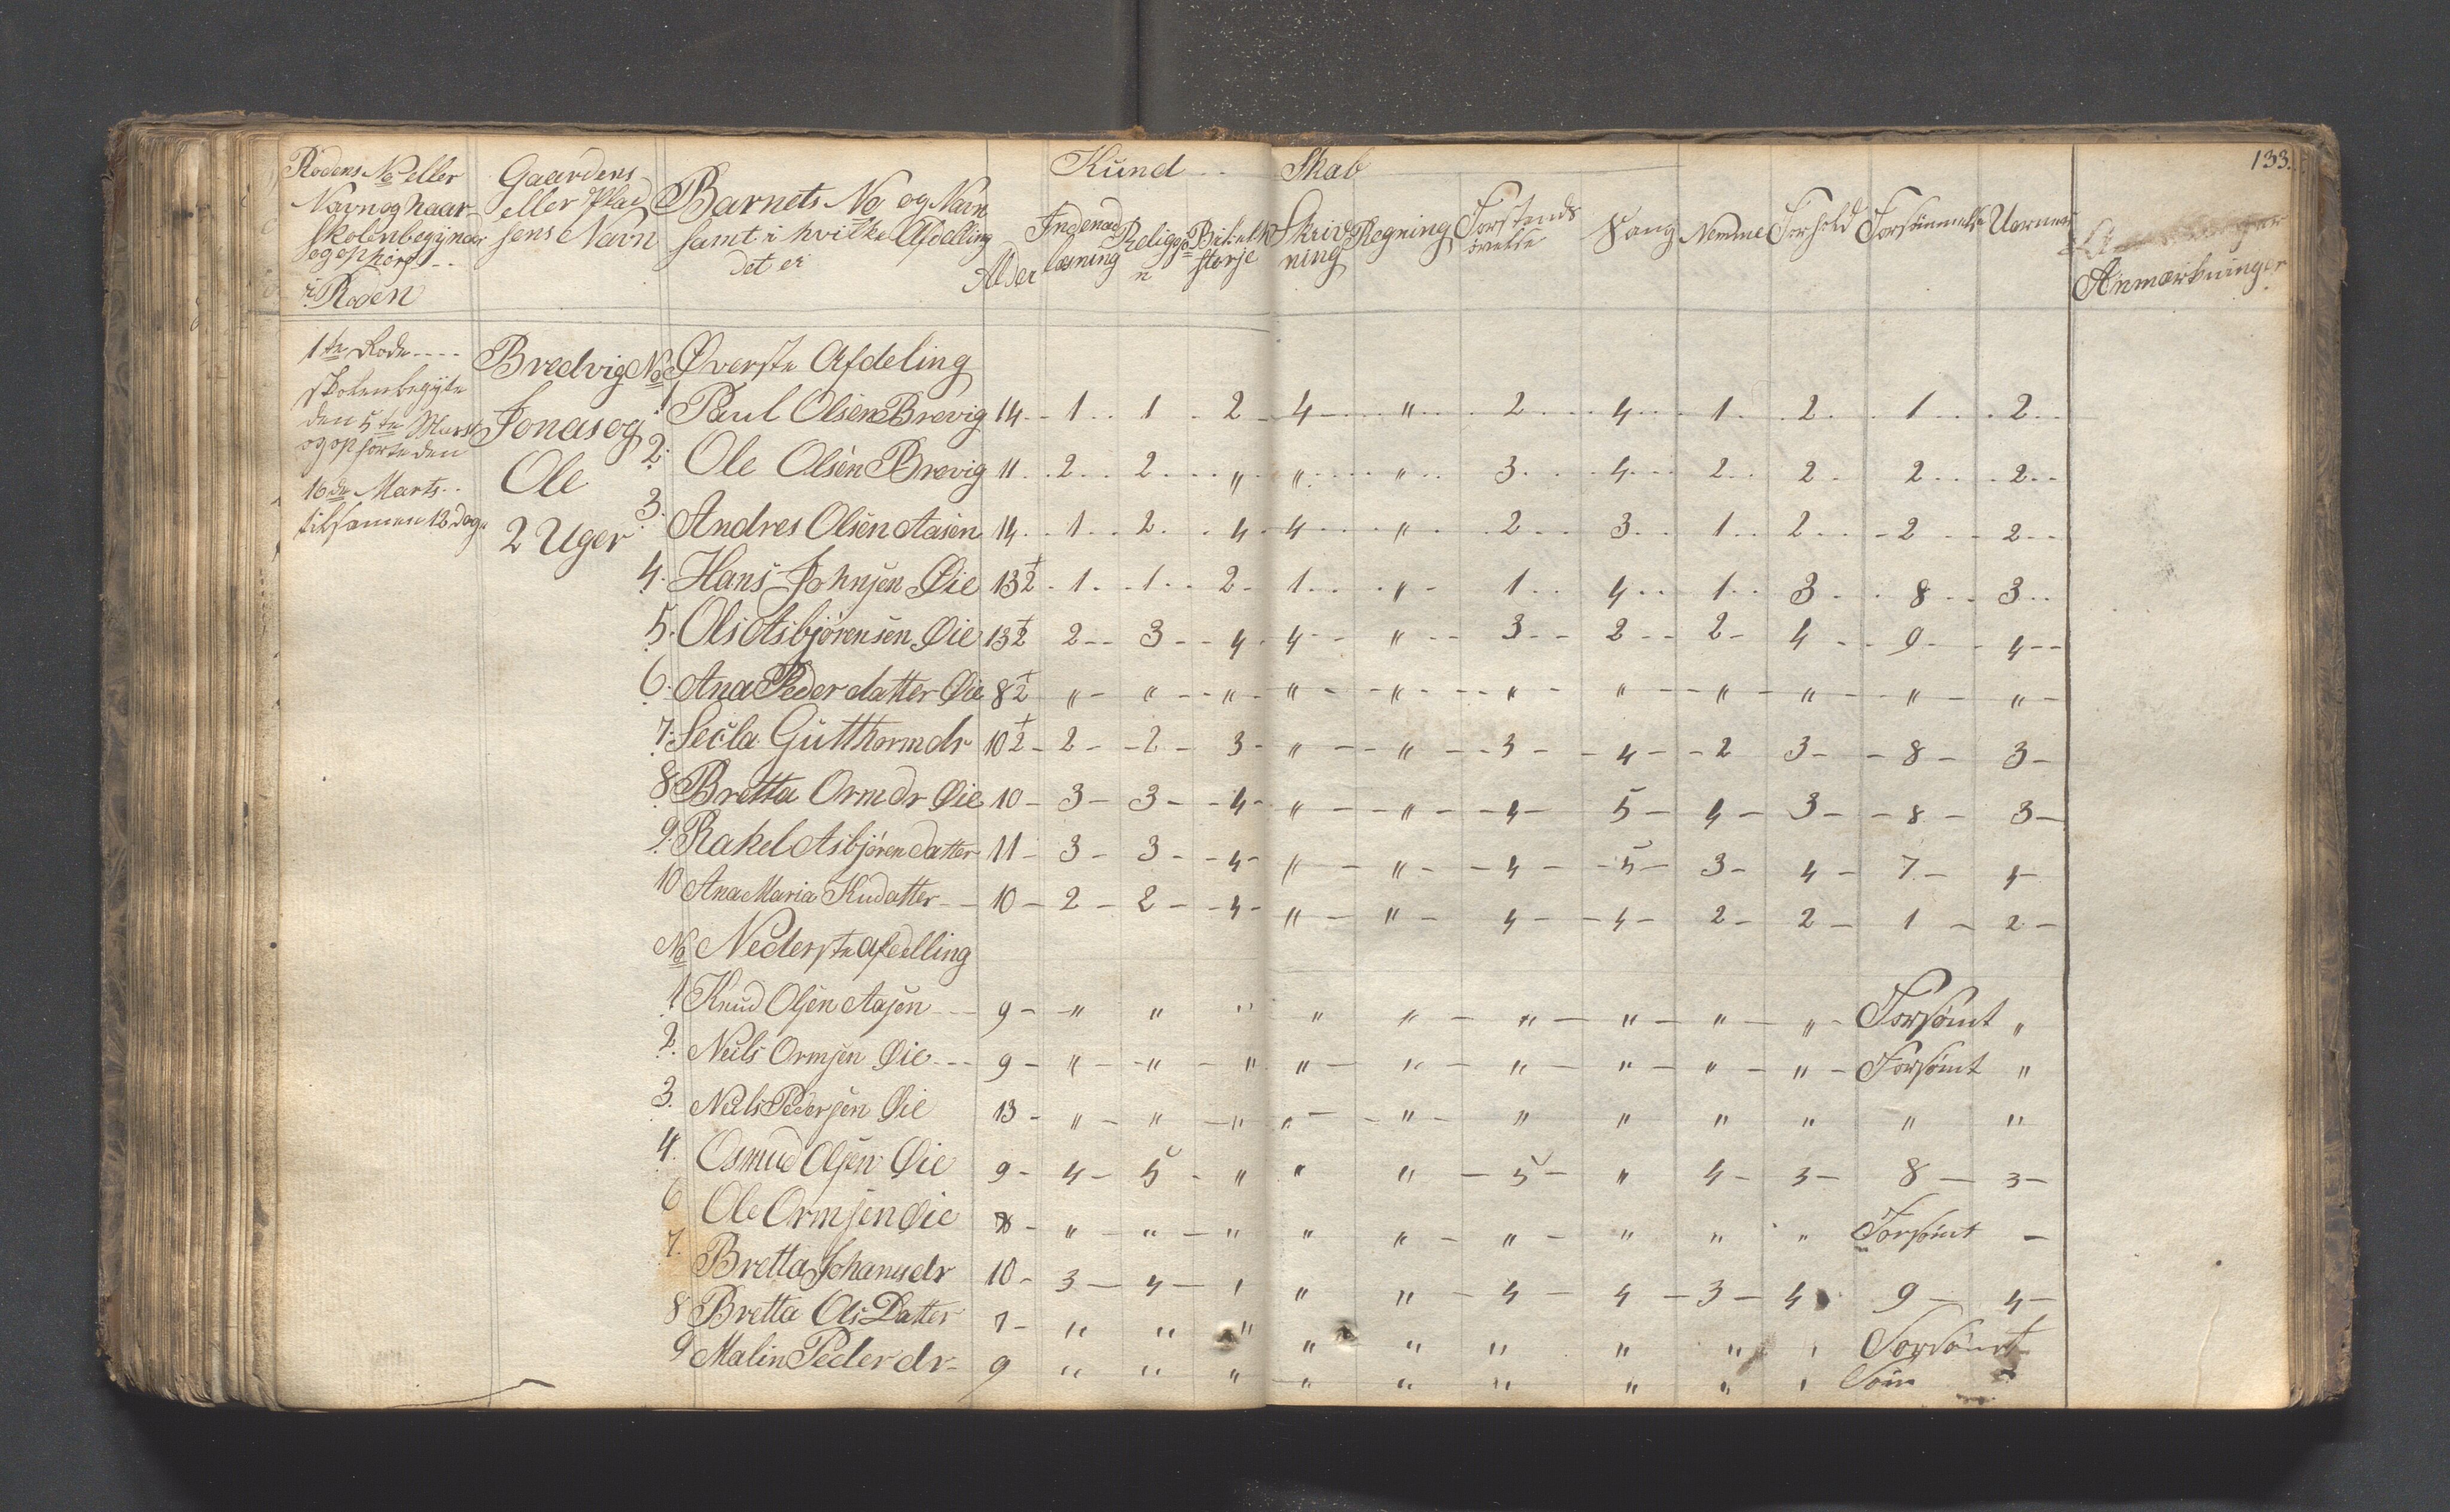 133.
Rodens No eller
Navn og naar
skolen begijner
og ophørt
i Roden
Gaardens
eller Plad
sens Navn
Barnets No og Navn
samt i hvilke Afdelling
det er
Alder
Kund Skab
Indenad
læsning
Religio
n
Bibelhi
storje
Skriv
ning
Regning
Forstands
øvelse
Sang
Nemme
Forhold
Forsömmelse
Anmærkninger
1te Rode
skolen begyte
den 5te Marts
og ophörte den
16de Marts
tilsamen 12 dage
Bredvig
Jonas og
Ole
2 Uger
No Øverste Afdeling
1 Paul Olsen Brevig 14 1 1 2 4 " 2 4 1 2 1 2
2. Ole Olsen Brevig 11 2 2 " " " 3 4 2 2 2 2
3. Andres Olsen Aasen 14 1 2 4 4 " 2 3 1 2 2 2
4. Hans Johnsen Øie 13½ 1 1 2 1 " 1 4 1 3 8 3
5. Ols Asbjørensen Øie 13½ 2 3 4 4 " 3 2 2 4 9 4
6. Ana Peder datter Øie 8½ " " " " " " " " " " "
7. Secla Gutthorm dr 10½ 2 2 3 " " 3 4 2 3 8 3
8 Bretta Orm dr Øie 10 3 3 4 " " 4 5 4 3 8 3
9. Rakel Asbjören datter 11 3 3 4 " " 4 5 3 4 7 4
10 Ana Maria Kudatter 10 2 2 4 " " 4 4 2 2 1 2
No Nederste Afdelling
1 Knud Olsen Aasen 9 " " " " " " " " " Forsömt "
2. Neils Ormsen Øie 9 " " " " " " " " " Forsömt "
3. Neils Pedersen Øie 13 " " " " " " " " " " "
4. Osmud Olsen Øie 9 4 5 " " " 5 " 4 3 8 3
6 Ole Ormsen Øie 8 " " " " " " " " " Forsömt
7. Bretta Johanes dr 10 3 4 " " " 4 4 3 4 9 4
8 Bretta Ols Datter 7 " " " " " " " " " Forsömt
9 Malin Peder dr 9 " " " " " " " " "